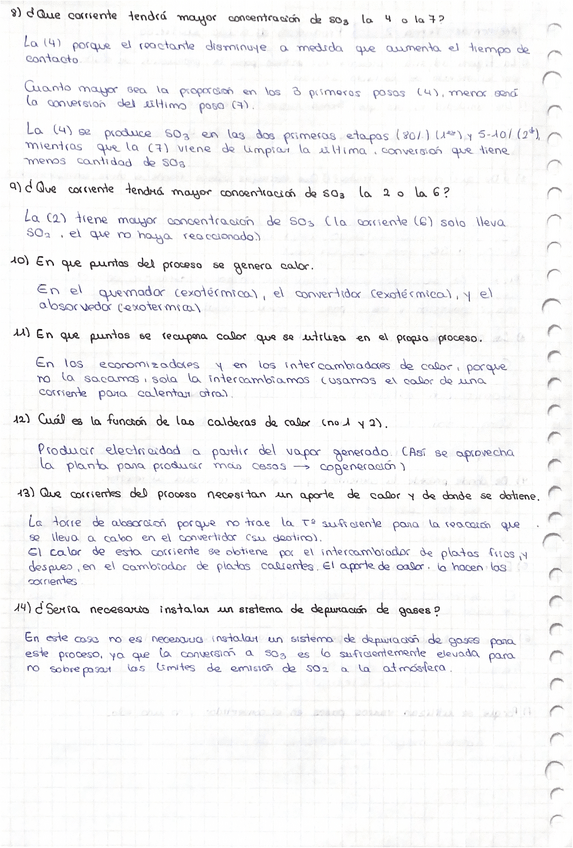 8) ¿Que corriente tendrá mayor concentración de SO₃ la 4 o la 7?
La (4) porque el reactante disminuye a medida que aumenta el tiempo de
contacto.
Cuanto mayor sea la proporción en los 3 primeros pasos (4), menor será
la conversión del último paso (7).
La (4) se produce SO₃ en las dos primeras etapas (80%) (1ª) y 5-10% (2ª),
mientras que la (7) viene de limpiar la última conversión que tiene
menos cantidad de SO₃
9) ¿Que corriente tendrá mayor concentración de SO₃ la 2 o la 6?
La (2) tiene mayor concentración de SO₃ (la corriente (6) solo lleva
SO₂, el que no haya reaccionado)
10) En que puntos del proceso se genera calor.
En el quemador (exotérmica), el convertidor (exotérmica), y el
absorvedor (exotermica)
11) En que puntos se recupera calor que se utiliza en el propio proceso.
En los economizadores y en los intercambiadores de calor, porque
no la sacamos, sola la intercambiamos (usamos el calor de una
corriente para calentar otra).
12) Cuál es la función de las calderas de calor (no 1 y 2).
Producir electricidad a partir del vapor generado. (Así se aprovecha
la planta para producir mas cosas → cogeneración)
13) Que corrientes del proceso necesitan un aporte de calor y de donde se obtiene.
La torre de absorción porque no trae la Tº suficiente para la reacción que
se lleva a cabo en el convertidor (su destino).
El calor de esta corriente se obtiene por el intercambiador de platos fríos, y
despues, en el cambiador de platos calientes. El aporte de calor lo hacen las
corrientes.
14) ¿Sería necesario instalar un sistema de depuración de gases?
En este caso no es necesario instalar un sistema de depuración de gases para
este proceso, ya que la conversión a SO₃ es lo suficientemente elevada para
no sobrepasar los límites de emisión de SO₂ a la atmósfera.